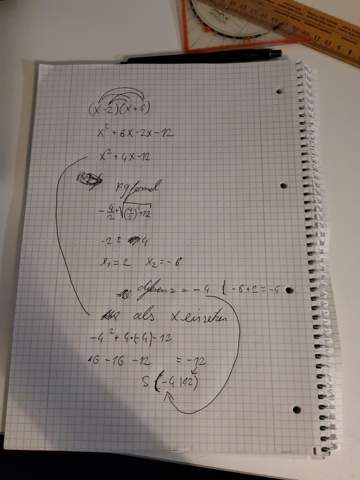 (x-2)(x+6)
x² + 6x - 2x - 12
x² + 4x - 12
pq formel
-4/2 ± √((4/2)² + 12)
-2 ± 4
x₁ = 2 x₂ = -6
= -4 | -6+2 = -4
als x einsetzen
-4² + 4·(-4) - 12
16 - 16 - 12 = -12
S (-4|12)